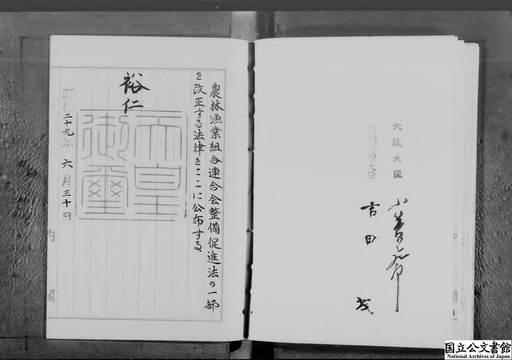 農林漁業組合連合会整備促進法の一部
を改正する法律をここに公布する。
裕仁
天皇
御璽
昭和二十九年 六月三十日
内閣
大蔵大臣
吉田茂
国立公文書館
National Archives of Japan